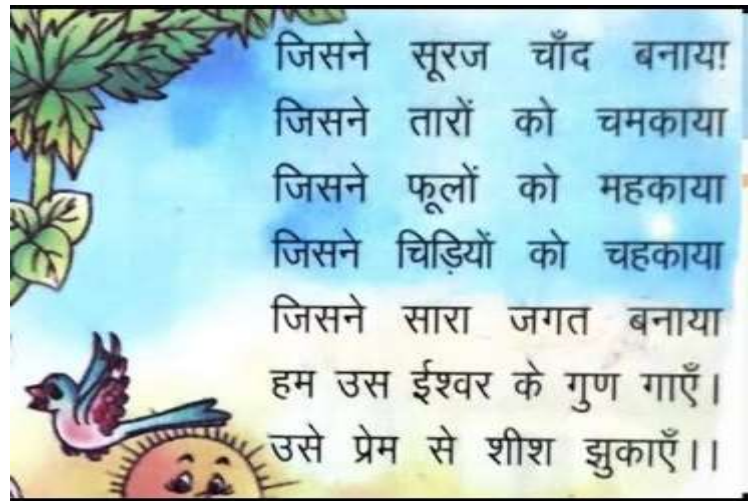 जिसने सूरज चाँद बनाया
जिसने तारों को चमकाया
जिसने फूलों को महकाया
जिसने चिड़ियों को चहकाया
जिसने सारा जगत बनाया
हम उस ईश्वर के गुण गाएँ।
उसे प्रेम से शीश झुकाएँ।।